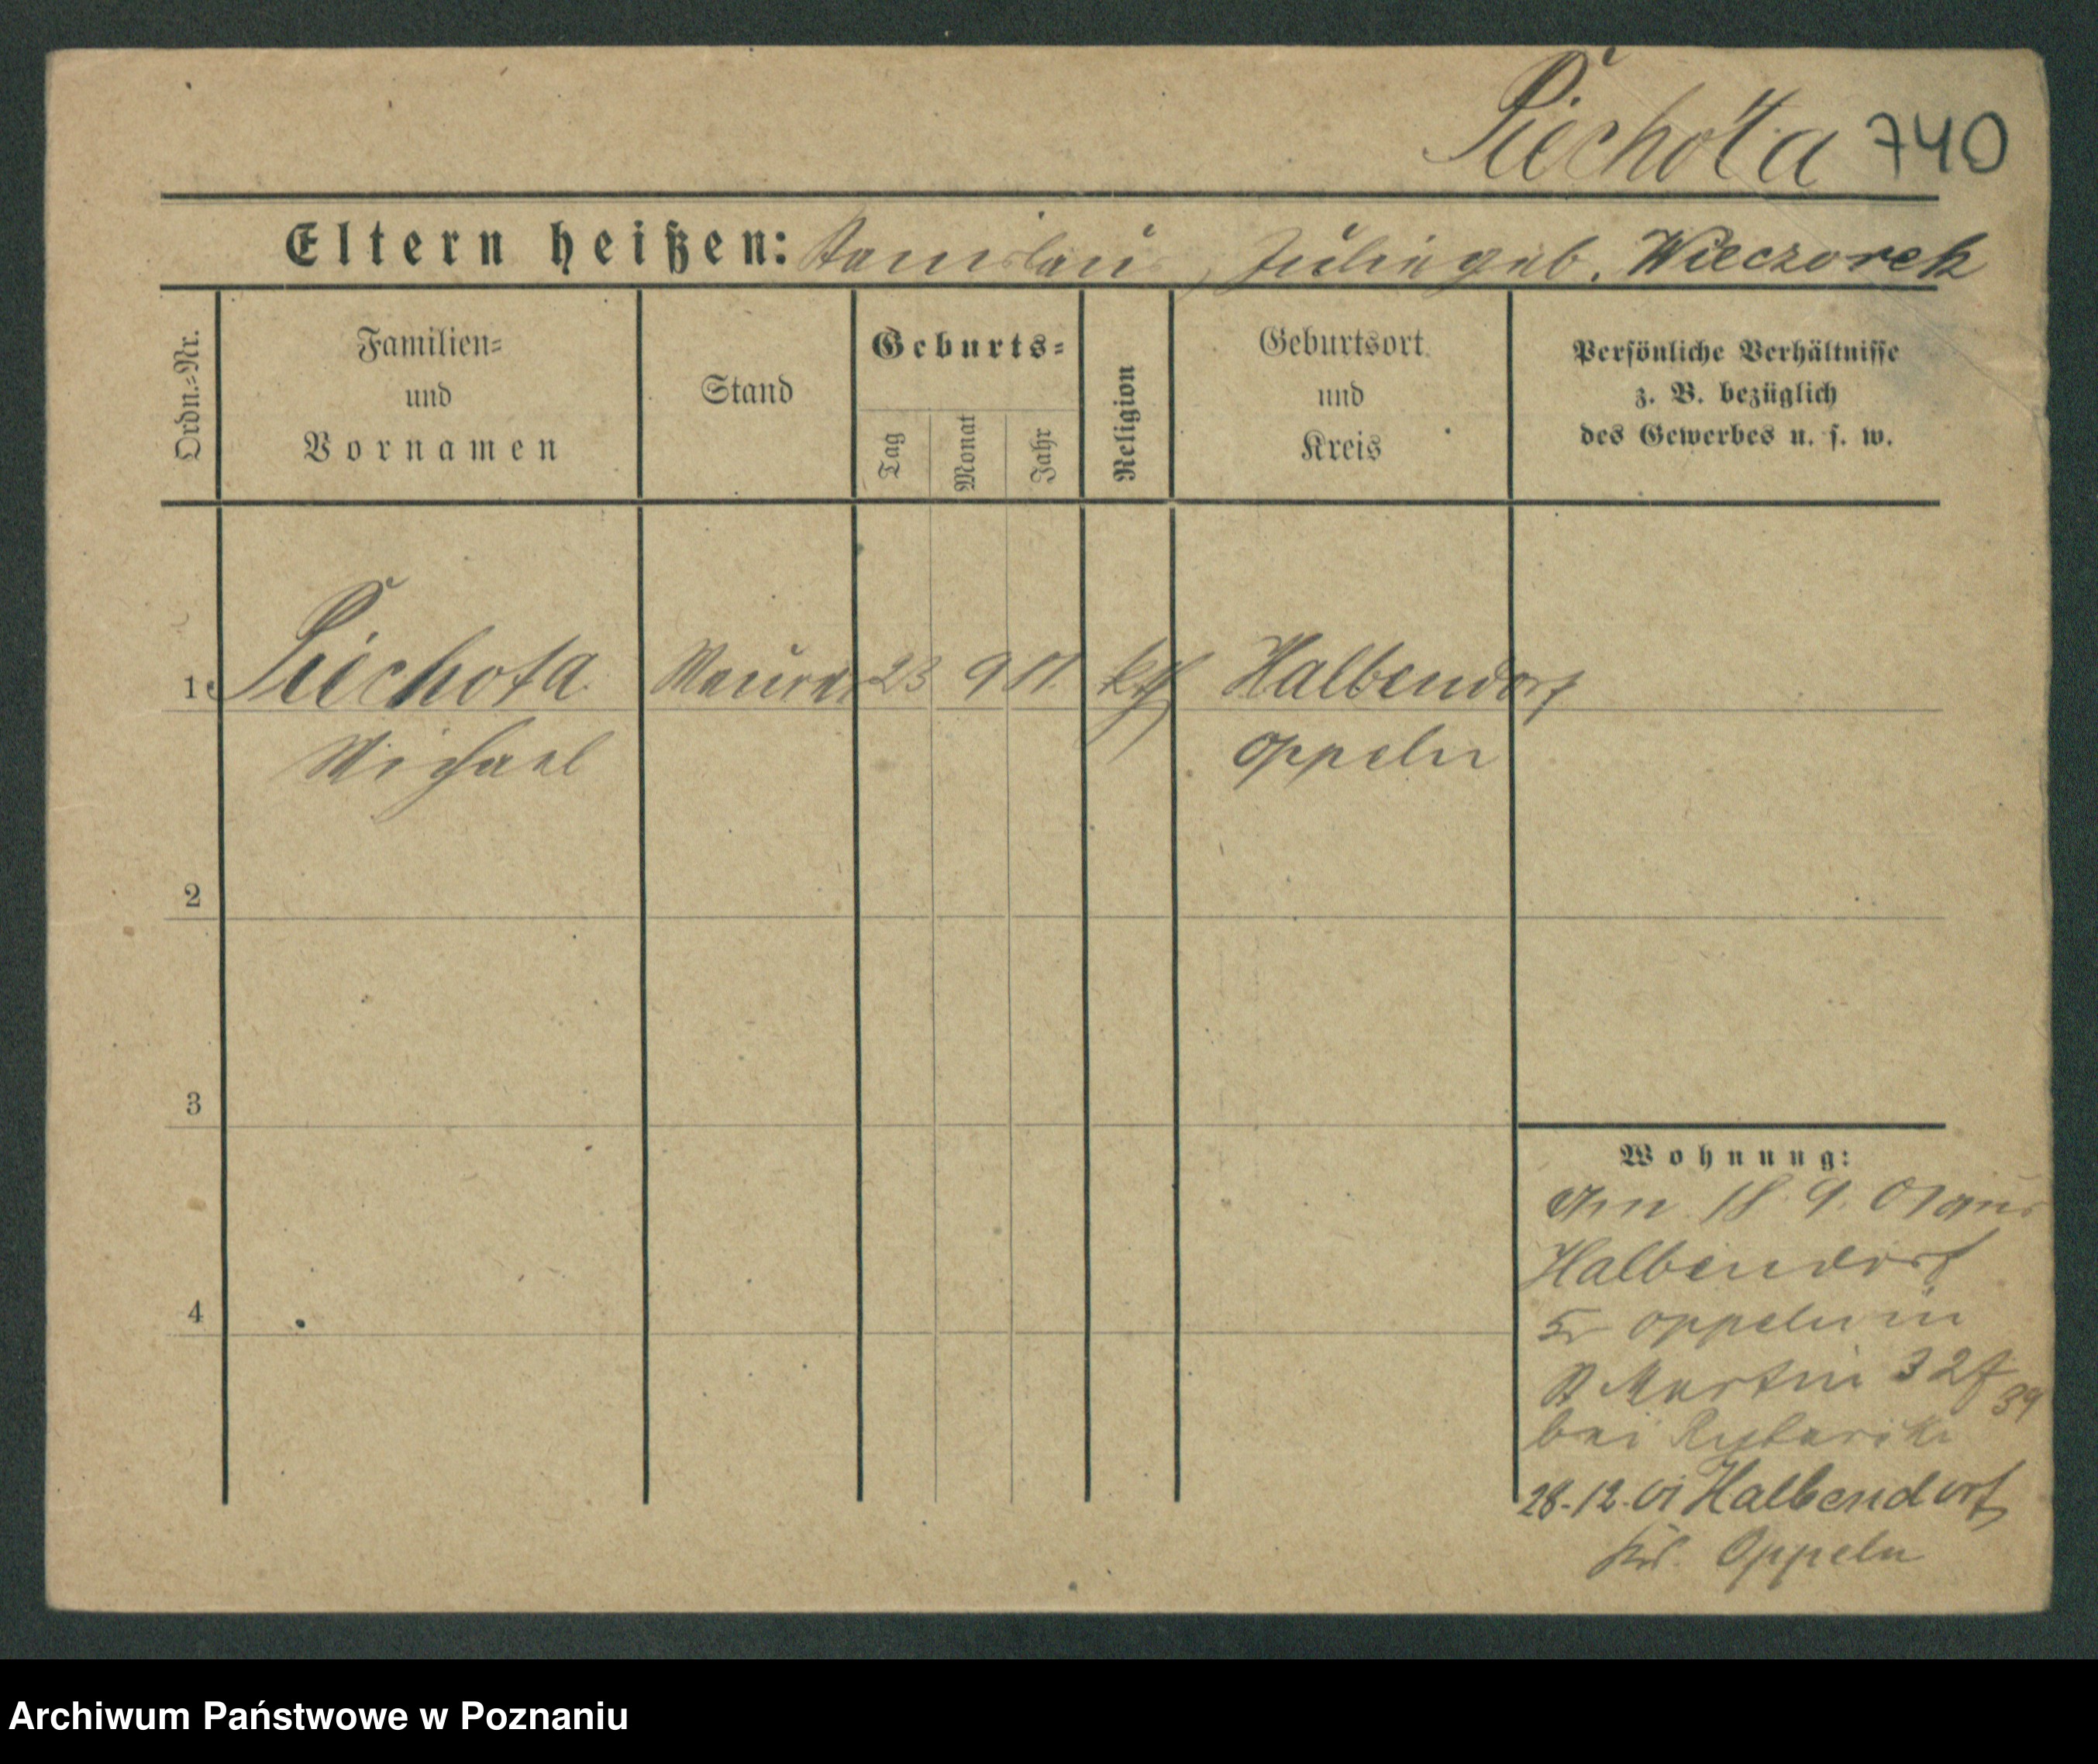 Piechota 740
Eltern heißen: Stanislaus, Julie geb. Wieczorek
Ordn.=Nr.
Familien=
und
Vornamen
Stand
Geburts=
Tag
Monat
Jahr
Religion
Geburtsort
und
Kreis
Persönliche Verhältnisse
z. B. bezüglich
des Gewerbes u. s. w.
1 Piechota Maurer 23 9 kth Halbendorf
Michael Oppeln
2
3
4
Wohnung:
Am 18. 9. 01 aus
Halbendorf
Kr Oppeln in
St Martin 32
39
bei
28-12-01 Halbendorf
Krs. Oppeln
Archiwum Państwowe w Poznaniu